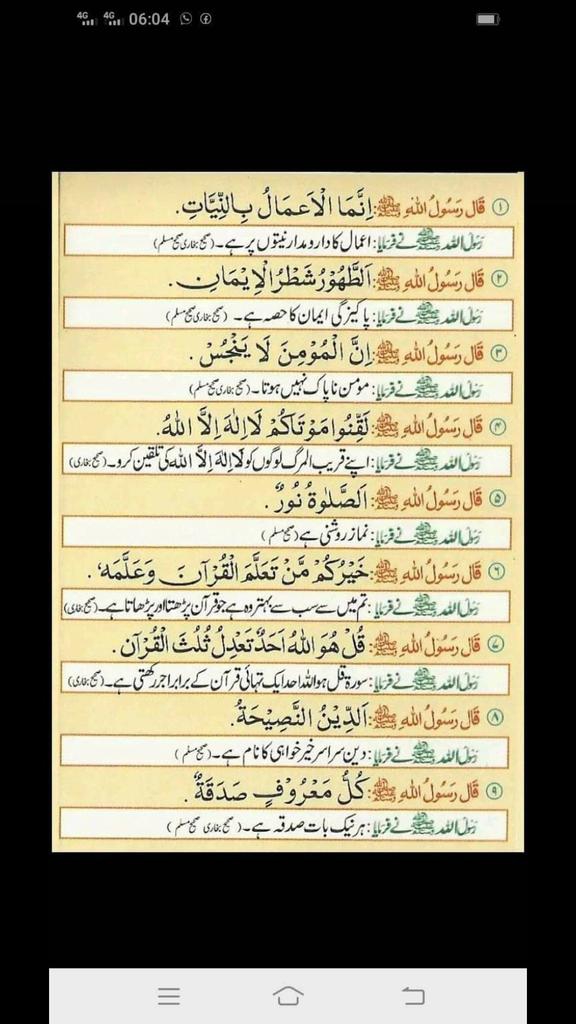 4G 4G 06:04
۱ قَالَ رَسُولُ اللهِ ﷺ: اِنَّمَا الْاَعمَالُ بِالنِّيَّاتِ.
رَسُولُ اللہ ﷺ نے فرمایا: اعمال کا دارومدار نیتوں پر ہے۔ (صحیح بخاری صحیح مسلم)
۲ قَالَ رَسُولُ اللهِ ﷺ: اَلطَّهُوْرُ شَطْرُ الْاِيْمَانِ.
رَسُولُ اللہ ﷺ نے فرمایا: پاکیزگی ایمان کا حصہ ہے۔ (صحیح بخاری صحیح مسلم)
۳ قَالَ رَسُولُ اللهِ ﷺ: اِنَّ الْمُوْمِنَ لَا يَنْجُسْ.
رَسُولُ اللہ ﷺ نے فرمایا: مومن ناپاک نہیں ہوتا۔ (صحیح بخاری صحیح مسلم)
۴ قَالَ رَسُولُ اللهِ ﷺ: لَقِّنُوا مَوْتَاكُمْ لَا اِلٰهَ اِلَّا اللهُ.
رَسُولُ اللہ ﷺ نے فرمایا: اپنے قریب المرگ لوگوں کو لَا اِلٰهَ اِلَّا اللہ کی تلقین کرو۔ (صحیح بخاری)
۵ قَالَ رَسُولُ اللهِ ﷺ: اَلصَّلٰوةُ نُورٌ.
رَسُولُ اللہ ﷺ نے فرمایا: نماز روشنی ہے (صحیح مسلم)
۶ قَالَ رَسُولُ اللهِ ﷺ: خَيْرُكُمْ مَّنْ تَعَلَّمَ الْقُرْآنَ وَعَلَّمَهٗ.
رَسُولُ اللہ ﷺ نے فرمایا: تم میں سے سب سے بہتر وہ ہے جو قرآن پڑھتا اور پڑھاتا ہے۔ (صحیح بخاری)
۷ قَالَ رَسُولُ اللهِ ﷺ: قُلْ هُوَ اللهُ اَحَدٌ تَعْدِلُ ثُلُثَ الْقُرْآنِ.
رَسُولُ اللہ ﷺ نے فرمایا: سورۃ قل ہو اللہ احد ایک تہائی قرآن کے برابر اجر رکھتی ہے۔ (صحیح بخاری)
۸ قَالَ رَسُولُ اللهِ ﷺ: اَلدِّيْنُ النَّصِيْحَةُ.
رَسُولُ اللہ ﷺ نے فرمایا: دین سراسر خیر خواہی کا نام ہے۔ (صحیح مسلم)
۹ قَالَ رَسُولُ اللهِ ﷺ: كُلُّ مَعْرُوْفٍ صَدَقَةٌ.
رَسُولُ اللہ ﷺ نے فرمایا: ہر نیک بات صدقہ ہے۔ (صحیح بخاری صحیح مسلم)